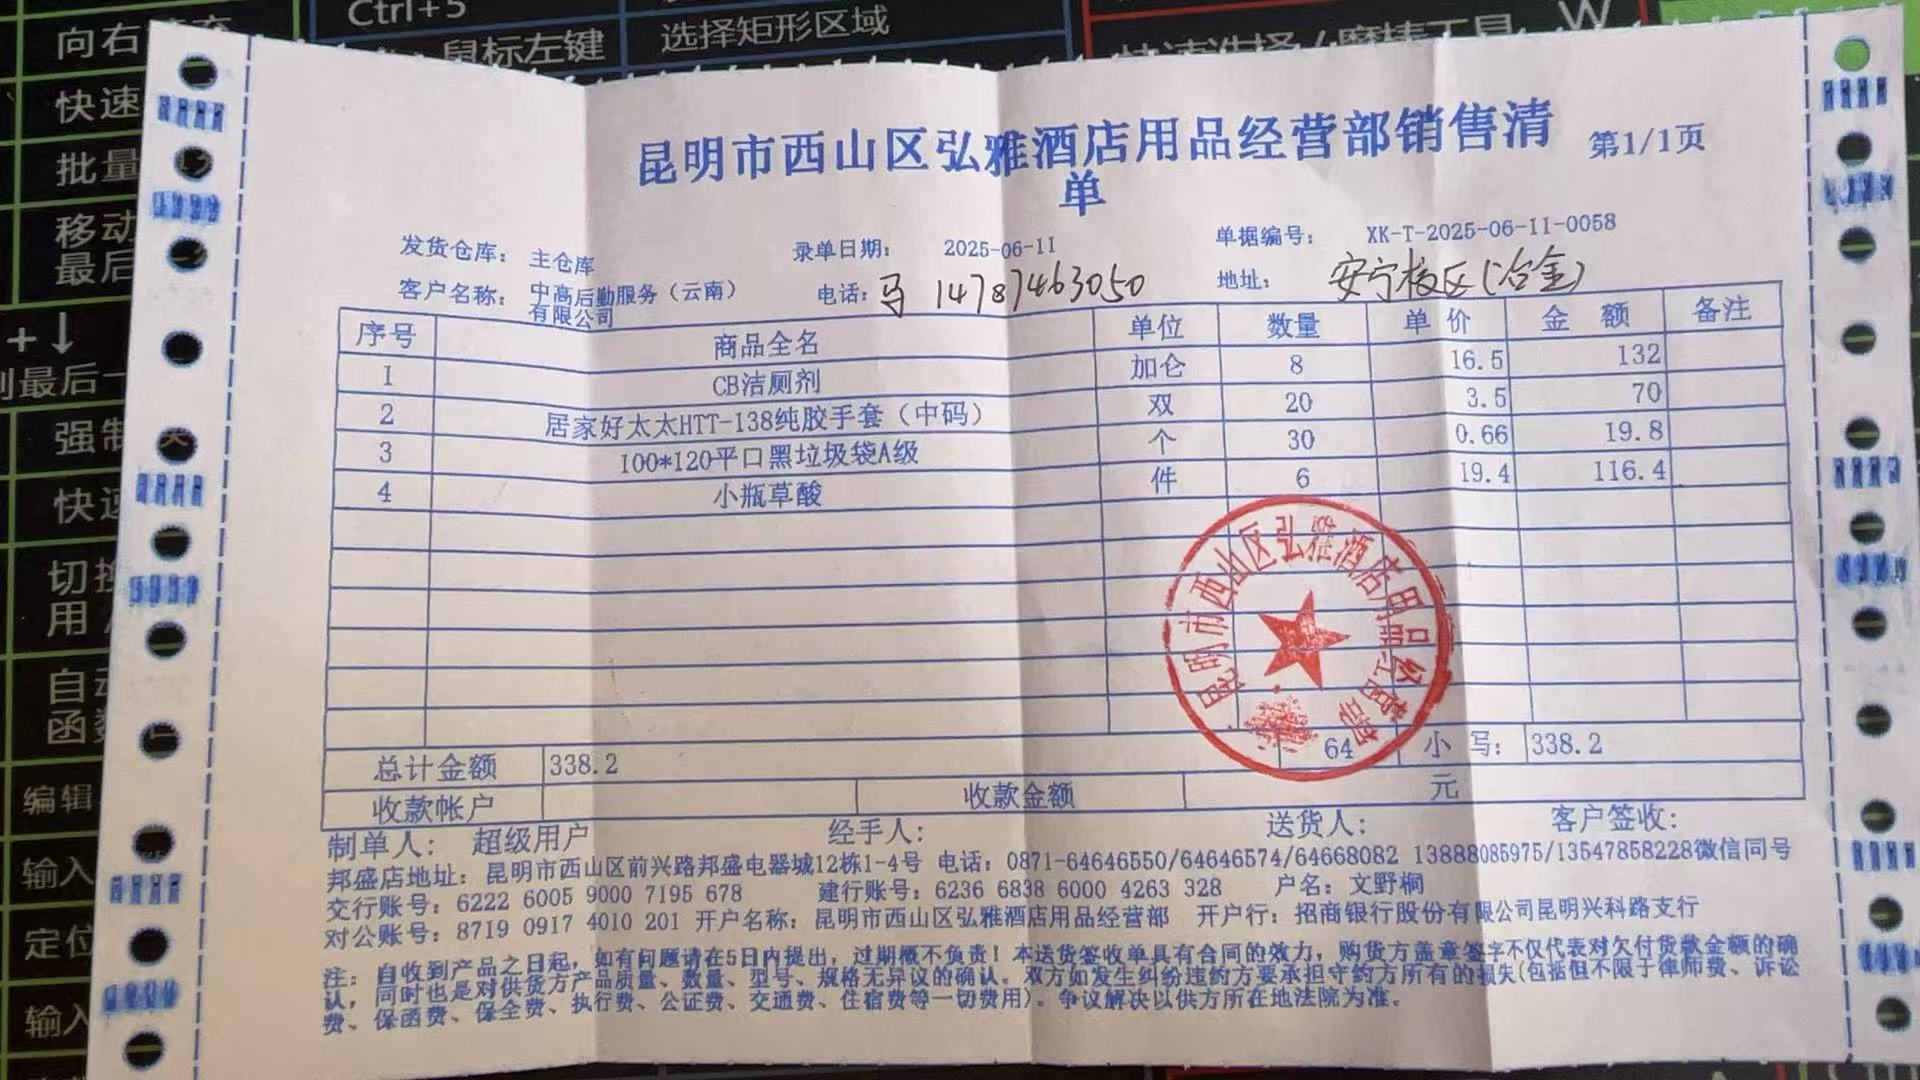 向右
Ctrl+5
鼠标左键
选择矩形区域
W
快速
批量
移动
最后
+↓
到最后一
强制
快速
切换
用
自动
函数
编辑
输入
定位
输入
昆明市西山区弘雅酒店用品经营部销售清
单
第1/1页
发货仓库: 主仓库 录单日期: 2025-06-11 单据编号: XK-T-2025-06-11-0058
客户名称: 中高后勤服务(云南)有限公司 电话: 马 14787463050 地址: 安宁校区(冶金)
序号 商品全名 单位 数量 单价 金额 备注
1 CB洁厕剂 加仑 8 16.5 132
2 居家好太太HTT-138纯胶手套(中码) 双 20 3.5 70
3 100*120平口黑垃圾袋A级 个 30 0.66 19.8
4 小瓶草酸 件 6 19.4 116.4
昆明市西山区弘雅酒店用品经营部
总计金额 338.2 64 小写: 338.2
收款帐户 收款金额 元
制单人: 超级用户 经手人: 送货人: 客户签收:
邦盛店地址: 昆明市西山区前兴路邦盛电器城12栋1-4号 电话: 0871-64646550/64646574/64668082 13888085975/13547858228微信同号
交行账号: 6222 6005 9000 7195 678 建行账号: 6236 6838 6000 4263 328 户名: 文野桐
对公账号: 8719 0917 4010 201 开户名称: 昆明市西山区弘雅酒店用品经营部 开户行: 招商银行股份有限公司昆明兴科路支行
注: 自收到产品之日起, 如有问题请在5日内提出, 过期概不负责! 本送货签收单具有合同的效力, 购货方盖章签字不仅代表对欠付货款金额的确
认, 同时也是对供货方产品质量、数量、型号、规格无异议的确认。双方如发生纠纷违约方要承担守约方所有的损失(包括但不限于律师费、诉讼
费、保函费、保全费、执行费、公证费、交通费、住宿费等一切费用)。争议解决以供方所在地法院为准。